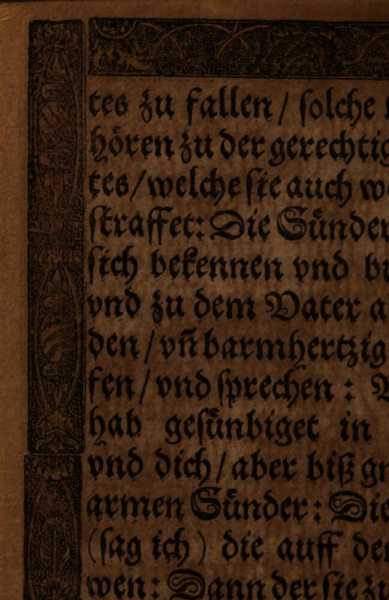 tes zu fallen / solche
hören zu der gerechtig
tes / welche sie auch w
straffet: Die Sünder
sich bekennen vnd b
vnd zu dem Vater a
den / vñ barmhertzig
fen / vnd sprechen :
hab gesündiget in
vnd dich / aber biß gn
armen Sünder: Die
(sag ich) die auff de
wen: Dann der sie zü